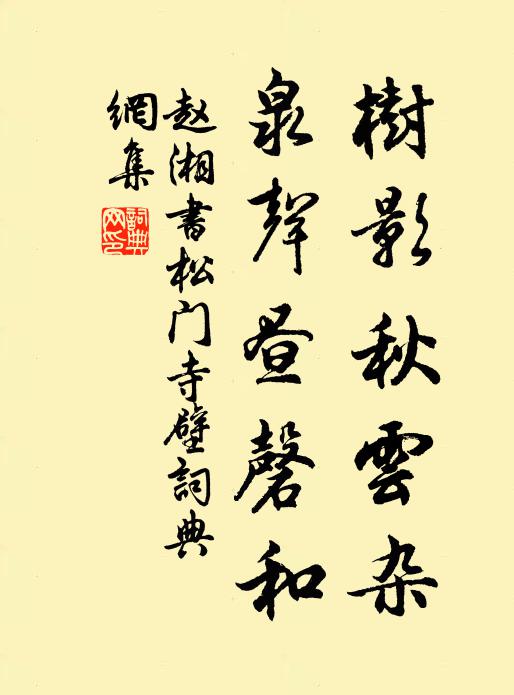 樹影秋雲杂
泉聲昼磬和
赵湘書松门寺壁詞典
網集
詞典
网印